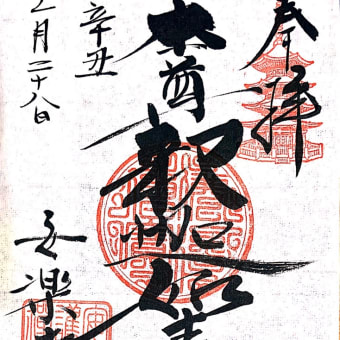 奉拝
本尊
釈迦如来
辛丑
月二十八日
安楽